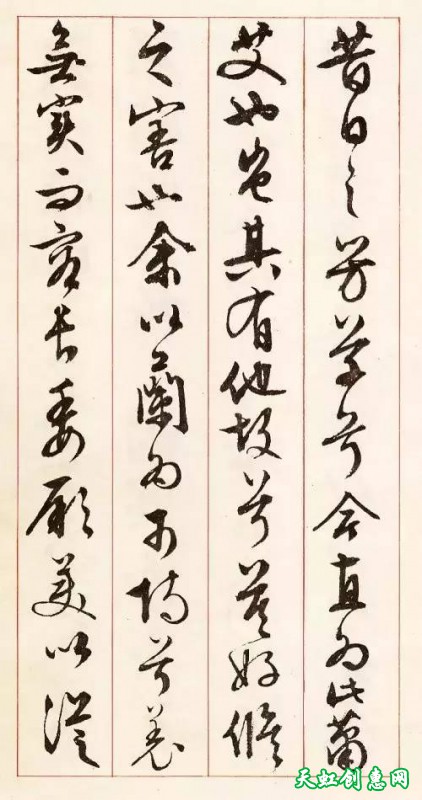 昔日之芳草兮今直為此蕭
艾也豈其有他故兮莫好脩
之害也余以蘭為可恃兮羌
無實而容長委厥美以從
天虹创意网